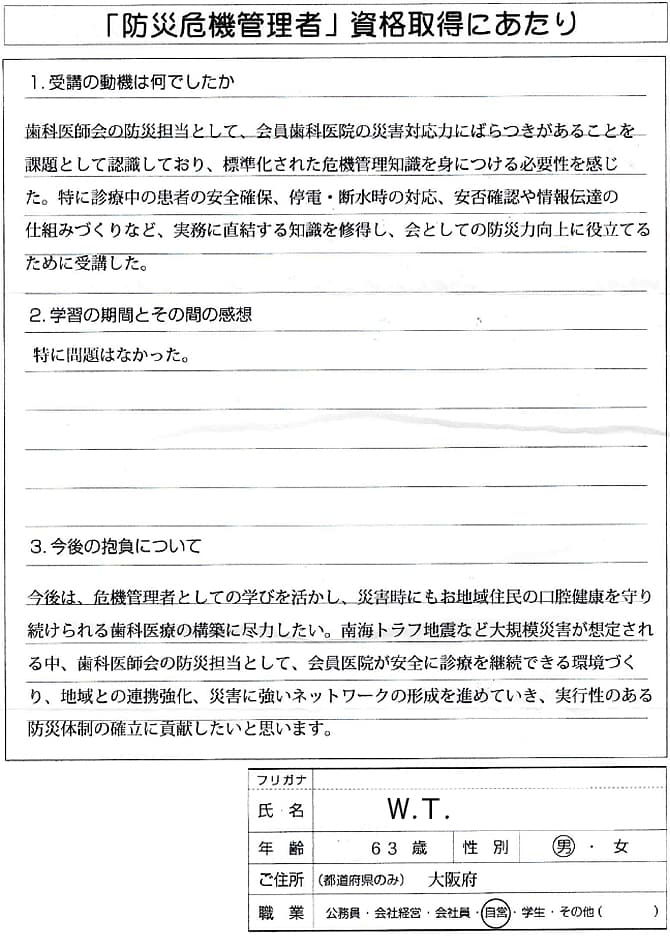 「防災危機管理者」資格取得にあたり
1. 受講の動機は何でしたか
歯科医師会の防災担当として、会員歯科医院の災害対応力にばらつきがあることを
課題として認識しており、標準化された危機管理知識を身につける必要性を感じ
た。特に診療中の患者の安全確保、停電・断水時の対応、安否確認や情報伝達の
仕組みづくりなど、実務に直結する知識を修得し、会としての防災力向上に役立てる
ために受講した。
2. 学習の期間とその間の感想
特に問題はなかった。
3. 今後の抱負について
今後は、危機管理者としての学びを活かし、災害時にもお地域住民の口腔健康を守り
続けられる歯科医療の構築に尽力したい。南海トラフ地震など大規模災害が想定され
る中、歯科医師会の防災担当として、会員医院が安全に診療を継続できる環境づく
り、地域との連携強化、災害に強いネットワークの形成を進めていき、実行性のある
防災体制の確立に貢献したいと思います。
フリガナ
氏 名 W.T.
年 齢 63 歳 性 別 男 ・ 女
ご住所 (都道府県のみ) 大阪府
職 業 公務員・会社経営・会社員・自営・学生・その他( )